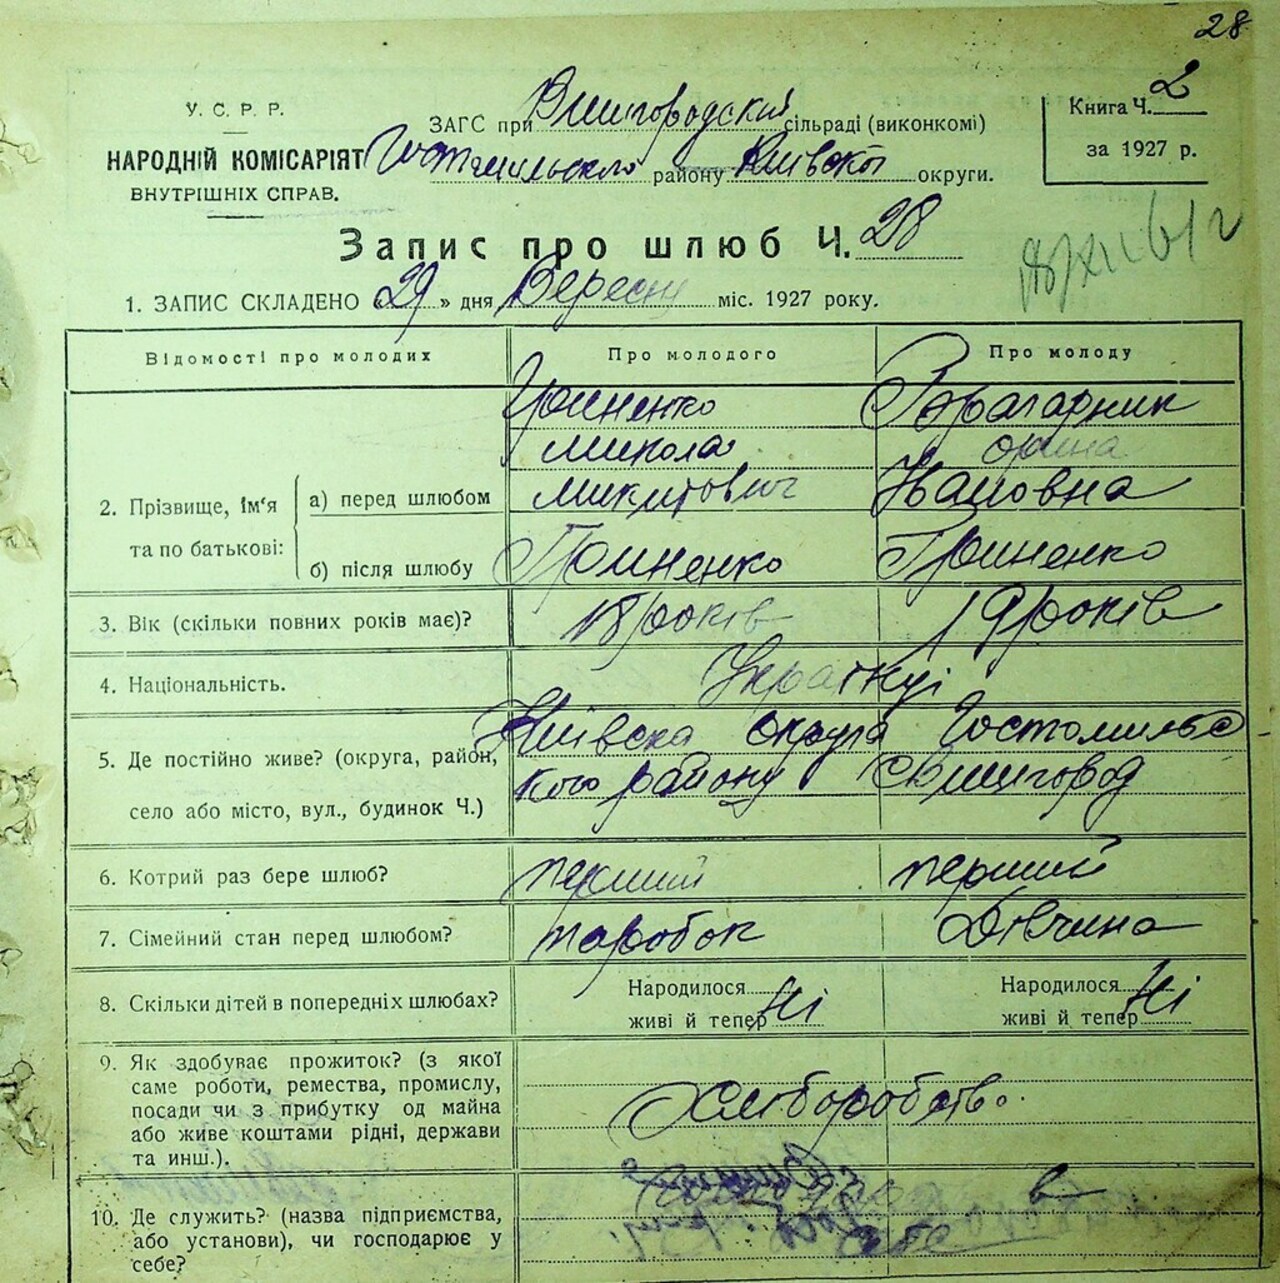 28
У. С. Р. Р.
НАРОДНІЙ КОМІСАРІЯТ
ВНУТРІШНІХ СПРАВ.
ЗАГС при Вишгородский сільраді (виконкомі)
Гостомильского району Київскої округи.
Книга Ч. 2
за 1927 р.
Запис про шлюб Ч. 28
1. ЗАПИС СКЛАДЕНО «29» дня Вересня міс. 1927 року.
Відомості про молодих
Про молодого
Про молоду
2. Прізвище, ім'я та по батькові:
а) перед шлюбом
Гриненко
Микола
Микитович
Орина
Івановна
б) після шлюбу
Гриненко
Гриненко
3. Вік (скільки повних років має)?
18 років
19 років
4. Національність.
Українці
5. Де постійно живе? (округа, район,
село або місто, вул., будинок Ч.)
Київска округа Гостомильс
кого району с Вишгород
6. Котрий раз бере шлюб?
перший
перший
7. Сімейний стан перед шлюбом?
паробок
Дівчина
8. Скільки дітей в попередніх шлюбах?
Народилося
живі й тепер Ні
Народилося
живі й тепер Ні
9. Як здобуває прожиток? (з якої
саме роботи, ремества, промислу,
посади чи з прибутку од майна
або живе коштами рідні, держави
та инш.).
Хліборобство.
10. Де служить? (назва підприємства,
або установи), чи господарює у
себе?
в
себе